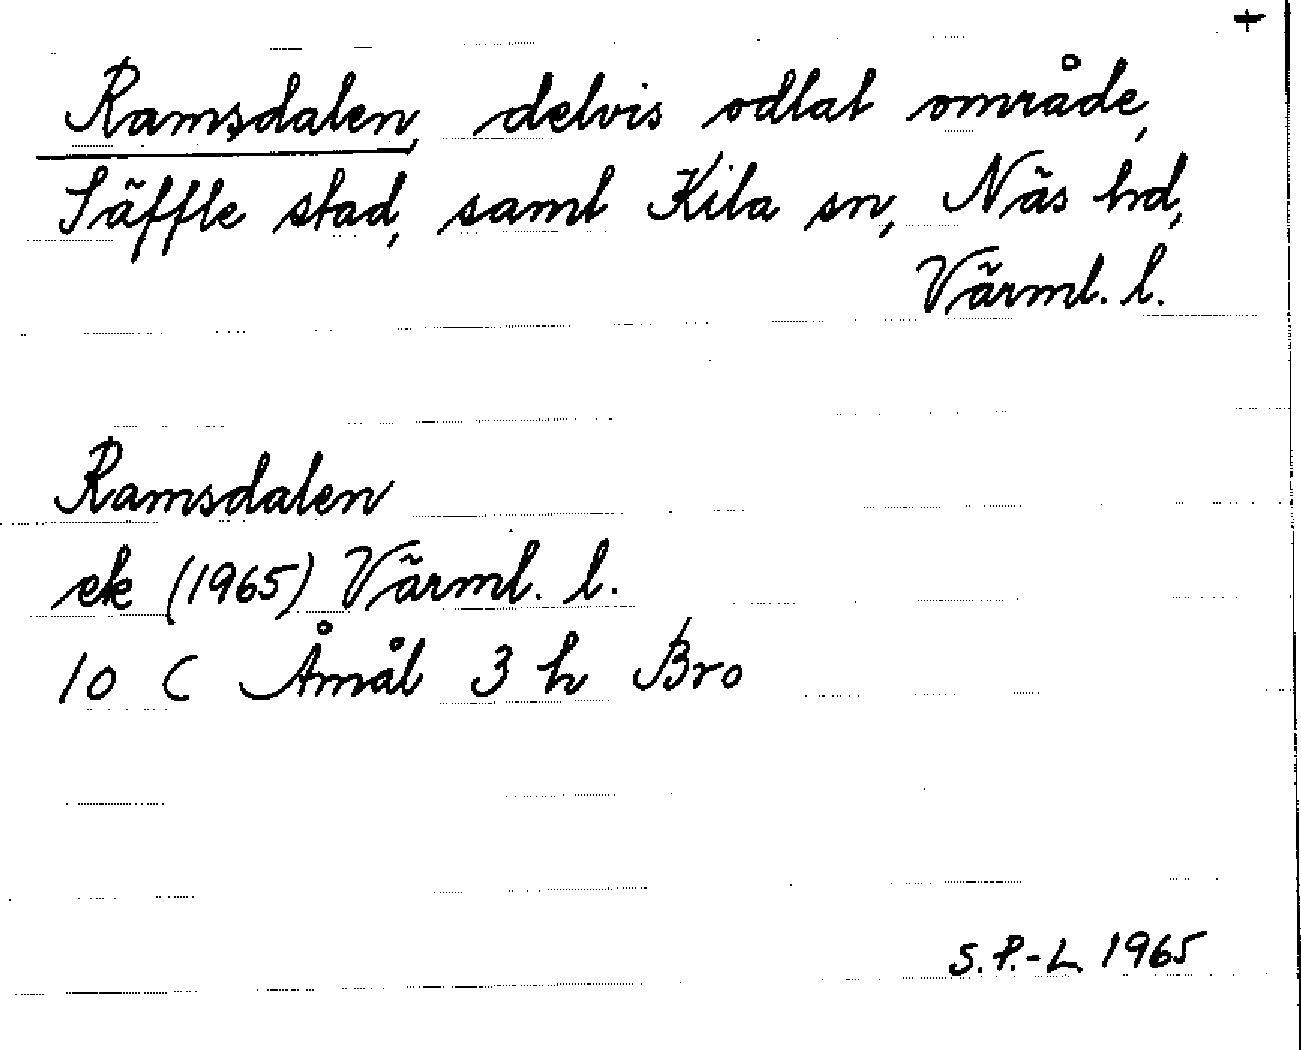 +
Ramsdalen, delvis odlat område,
Säffle stad, samt Kila sn, Näs hd,
Värml. l.
Ramsdalen
ek (1965) Värml. l.
10 C Åmål 3 h Bro
S.P.-L 1965